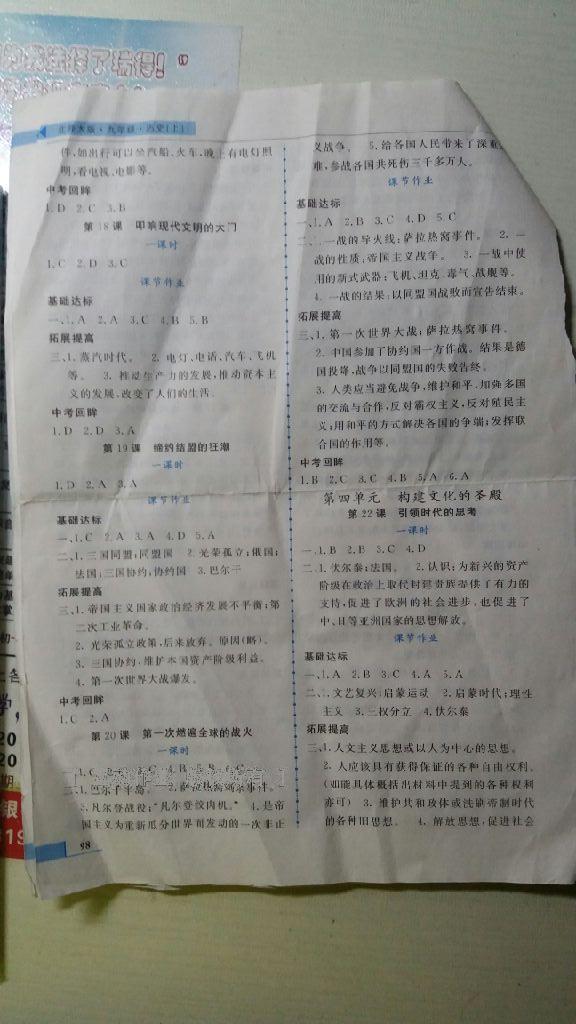 的我选择了瑞得！"
北师大版·九年级·历史(上)
件,如出行可以坐汽船、火车,晚上有电灯照
明,看电视、电影等。
中考回眸
1.D 2.C 3.B
第18课 叩响现代文明的大门
一课时
1.C 2.D 3.C
课节作业
基础达标
一、1.A 2.A 3.C 4.B 5.B
拓展提高
三、1.蒸汽时代。 2.电灯、电话、汽车、飞机
等。 3.推动生产力的发展,推动资本主
义的发展,改变了人们的生活。
中考回眸
1.D 2.D 3.A
第19课 缔约结盟的狂潮
一课时
1.D 2.A 3.A
课节作业
基础达标
一、1.C 2.A 3.A 4.D 5.A
二、1.三国同盟;同盟国 2.光荣孤立;俄国;
法国;三国协约;协约国 3.巴尔干
拓展提高
三、1.帝国主义国家政治经济发展不平衡;第
二次工业革命。
2.光荣孤立政策,后来放弃。原因(略)。
3.三国协约,维护本国资产阶级利益。
4.第一次世界大战爆发。
中考回眸
1.C 2.A
第20课 第一次燃遍全球的战火
一课时
二、1.巴尔干半岛。 2.萨拉热窝刺杀事件。
3.凡尔登战役;"凡尔登绞肉机。" 4.是帝
国主义为重新瓜分世界而发动的一次非正
98
义战争。 5.给各国人民带来了深重
难,参战各国共死伤三千多万人。
课节作业
基础达标
一、1.A 2.B 3.C 4.D 5.C
二、1.一战的导火线:萨拉热窝事件。 2.一
战的性质:帝国主义战争。 3.一战中使
用的新式武器:飞机、坦克、毒气、战舰等。
4.一战的结果:以同盟国战败而宣告结束。
拓展提高
三、1.第一次世界大战;萨拉热窝事件。
2.中国参加了协约国一方作战。结果是德
国投降,战争以同盟国的失败告终。
3.人类应当避免战争,维护和平,加强多国
的交流与合作,反对霸权主义,反对殖民主
义;用和平的方式解决各国的争端;发挥联
合国的作用等。
中考回眸
1.B 2.C 3.C 4.B 5.A 6.A
第四单元 构建文化的圣殿
第22课 引领时代的思考
一课时
一、1.B 2.B 3.C 4.D
二、1.伏尔泰;法国。 2.认识:为新兴的资产
阶级在政治上取代封建贵族提供了有力的
支持,促进了欧洲的社会进步,也促进了
中、日等亚洲国家的思想解放。
课节作业
基础达标
一、1.A 2.B 3.C 4.A 5.A
二、1.文艺复兴;启蒙运动 2.启蒙时代;理性
主义 3.三权分立 4.伏尔泰
拓展提高
三、1.人文主义思想或以人为中心的思想。
2.人应该具有获得保证的各种自由权利。
(如能具体概括出材料中提到的各种权利
亦可) 3.维护共和政体或洗刷帝制时代
的各种旧思想。 4.解放思想,促进社会